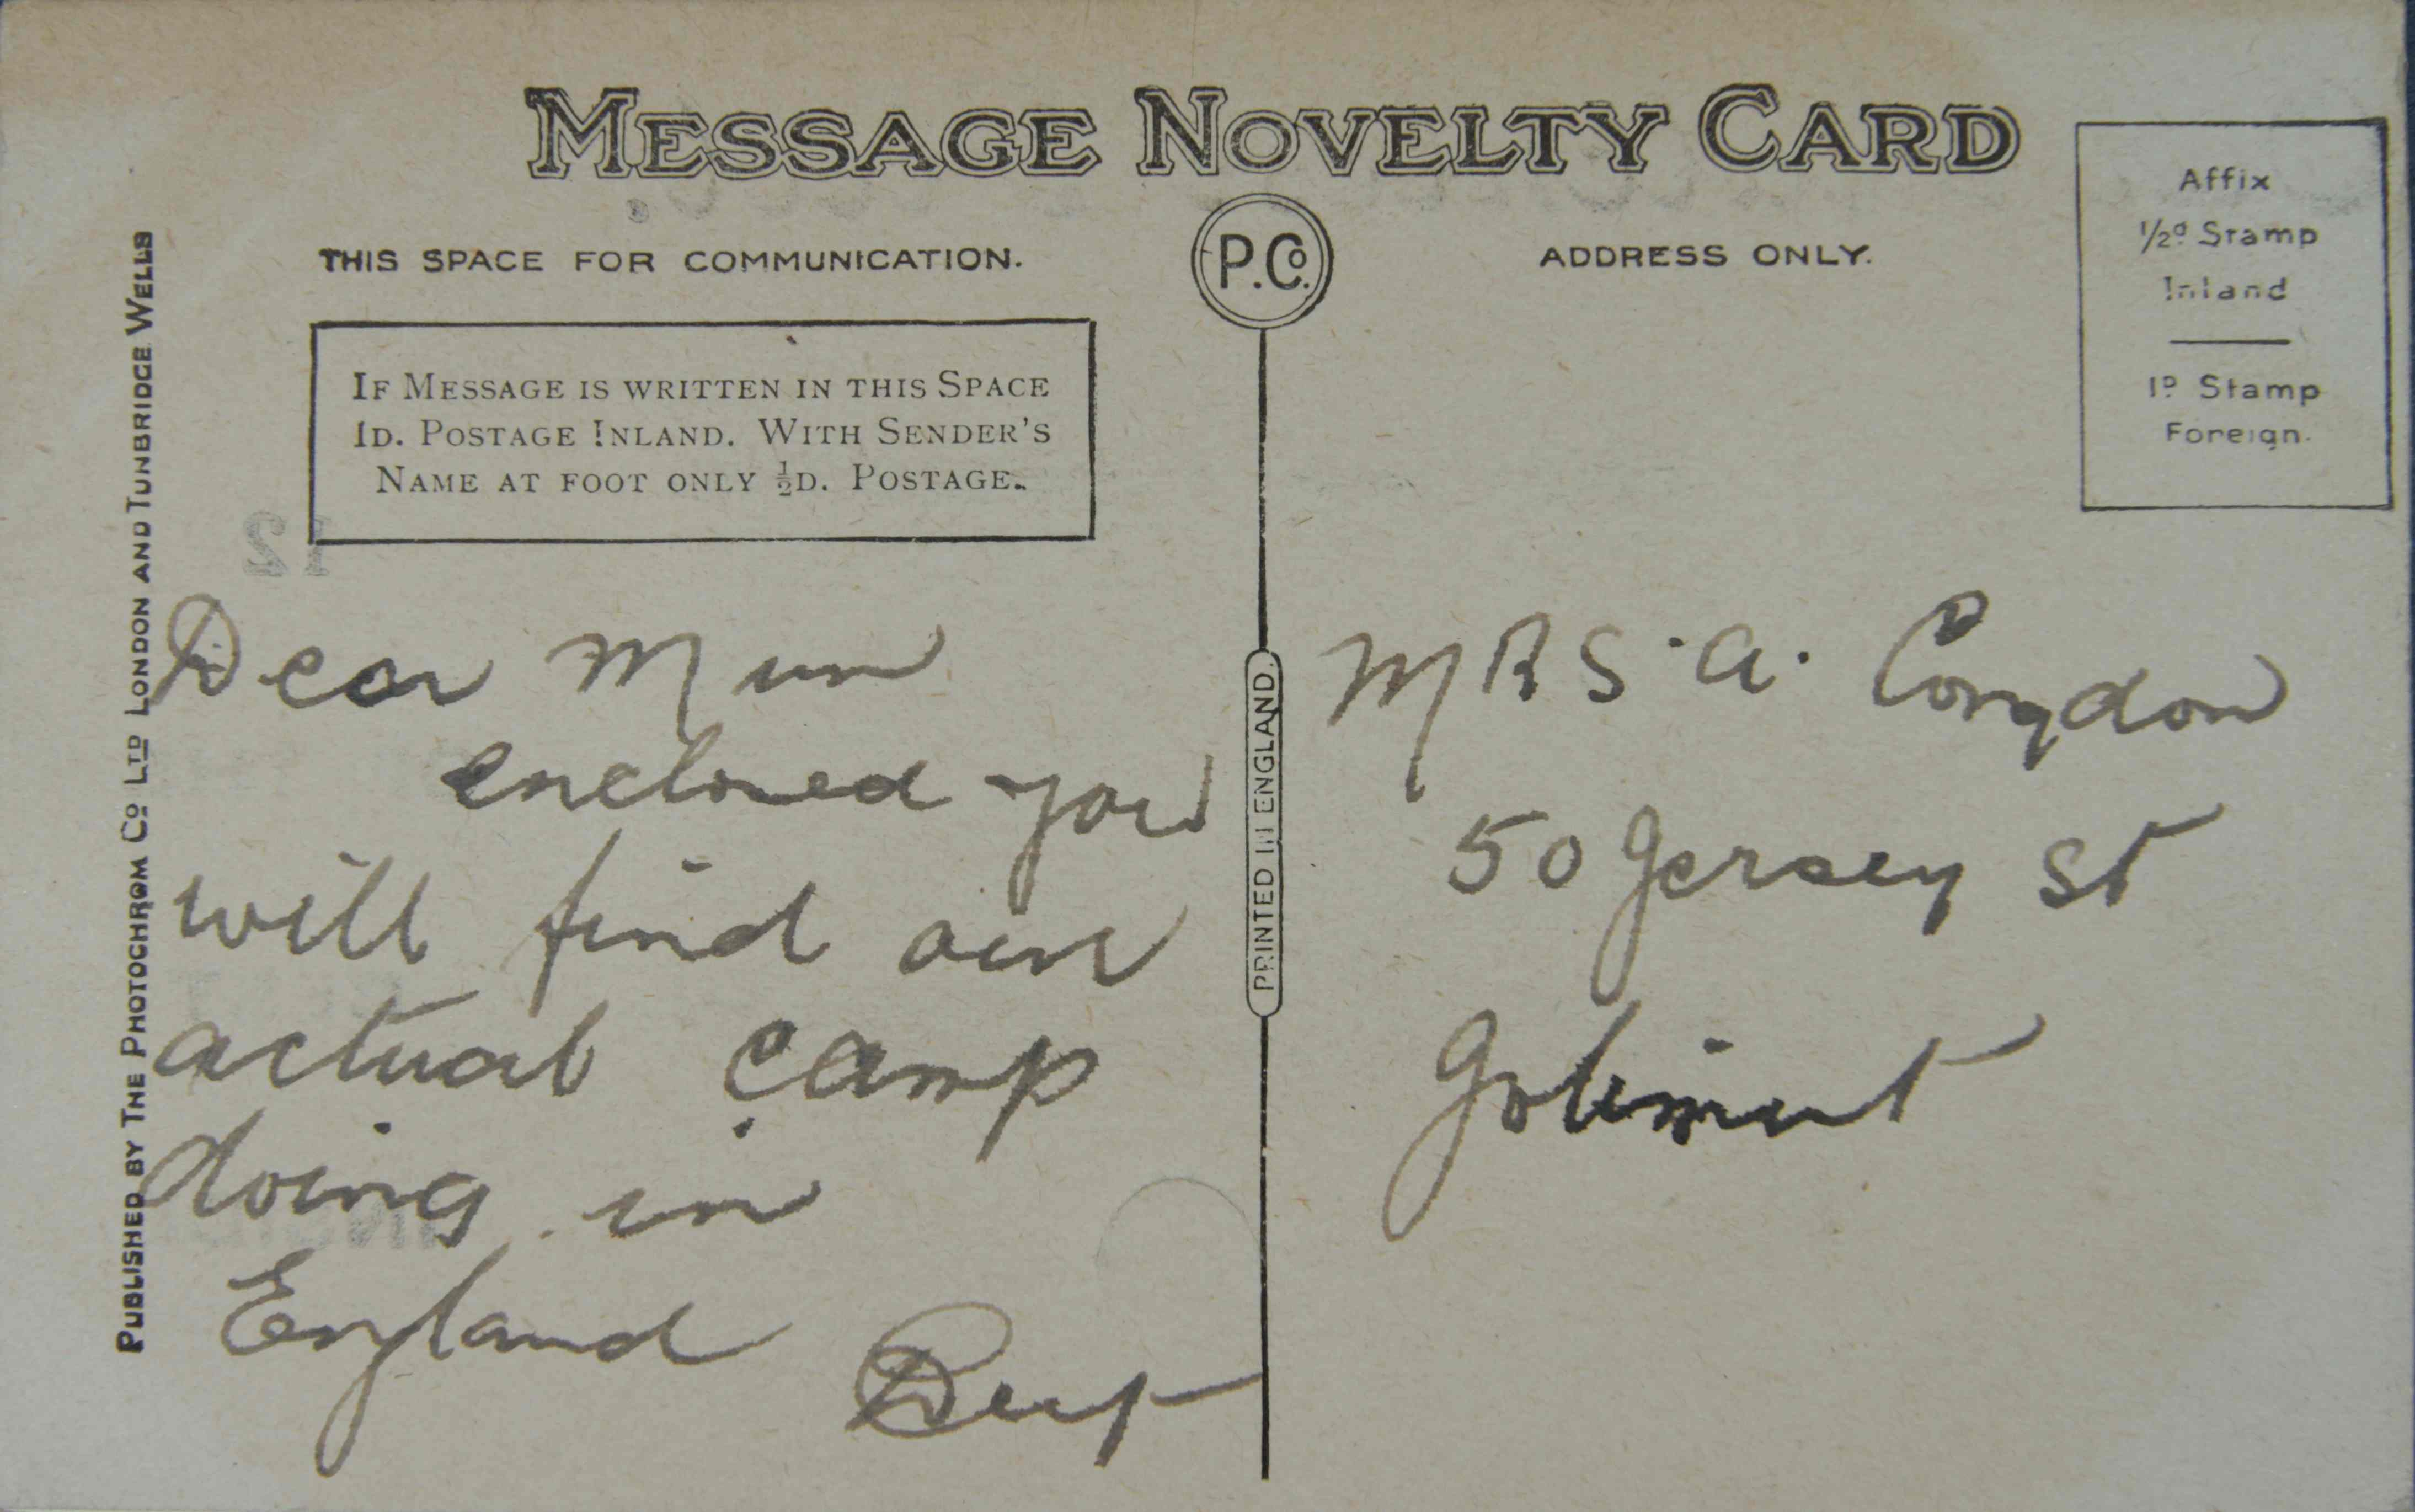 MESSAGE NOVELTY CARD
THIS SPACE FOR COMMUNICATION.
P.Co.
ADDRESS ONLY.
Affix
1/2d Stamp
Inland
1D Stamp
Foreign.
IF MESSAGE IS WRITTEN IN THIS SPACE
1D. POSTAGE INLAND. WITH SENDER'S
NAME AT FOOT ONLY ½D. POSTAGE.
PUBLISHED BY THE PHOTOCHROM Co LTD LONDON AND TUNBRIDGE WELLS
Dear Mum
enclosed you
will find our
actual camp
doing in
England
PRINTED IN ENGLAND.
MRS. A. Congdon
50 Jersey St
Jolimont